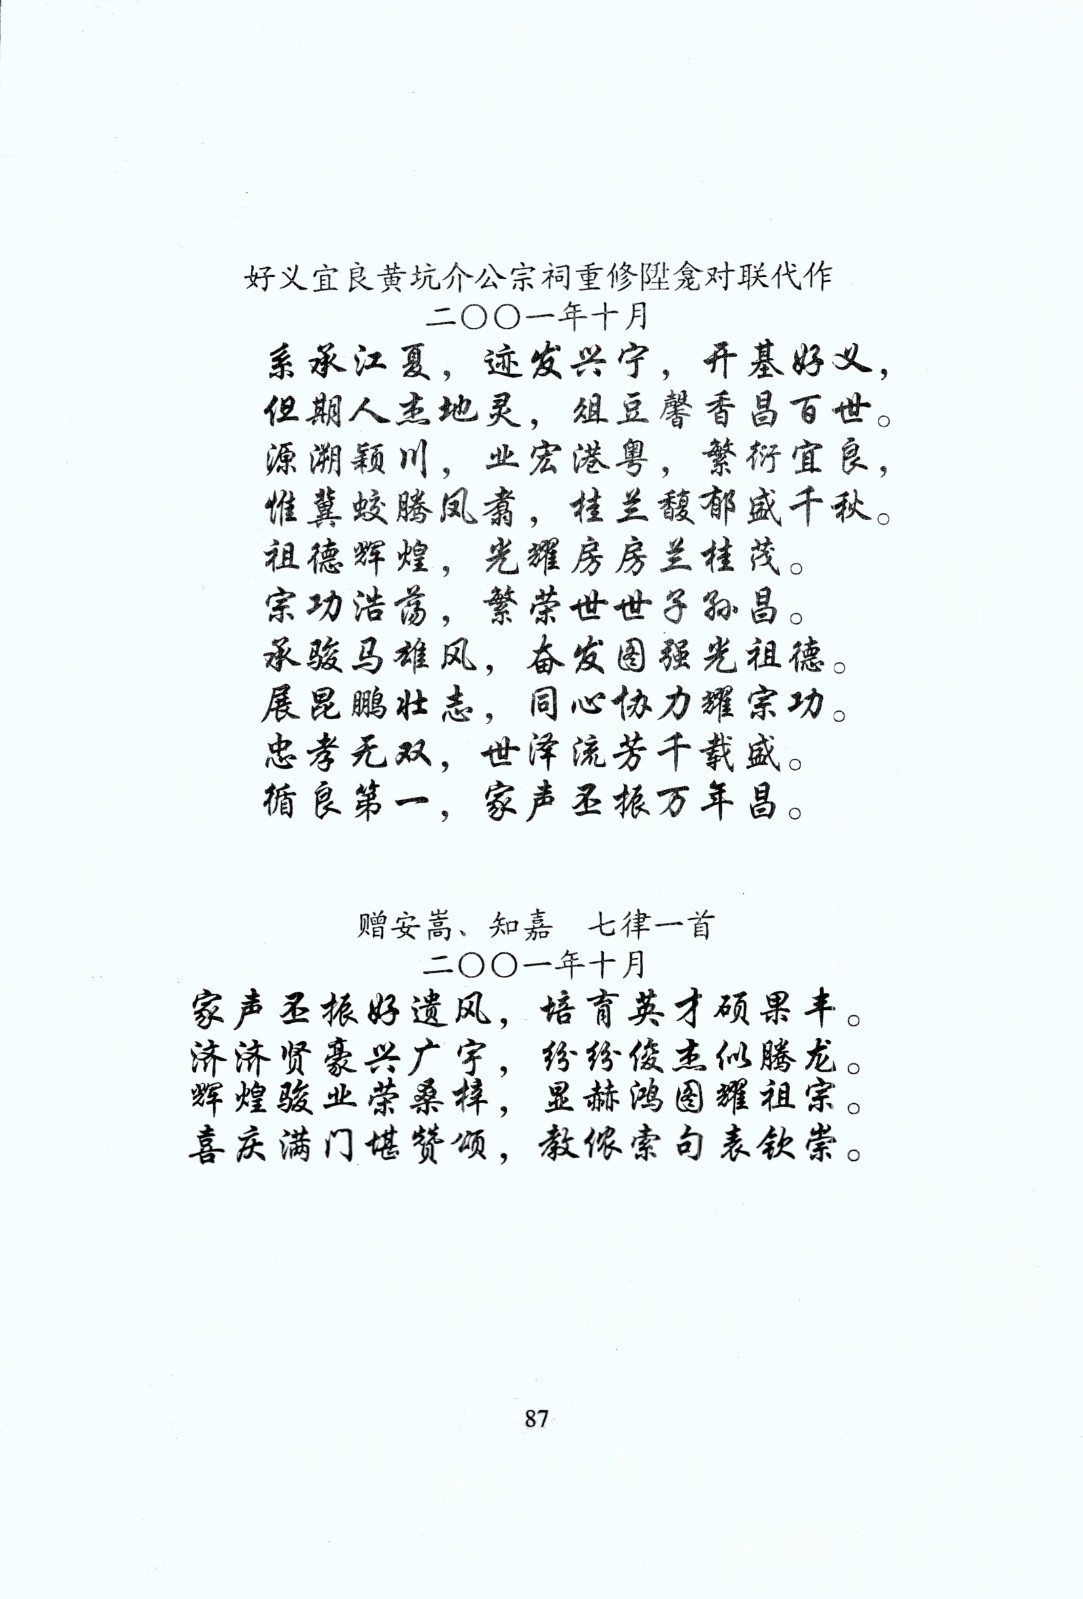 好义宜良黄坑介公宗祠重修陞龛对联代作
二〇〇一年十月
系承江夏，迹发兴宁，开基好义，
但期人杰地灵，俎豆馨香昌百世。
源溯颖川，业宏港粤，繁衍宜良，
惟冀蛟腾凤翥，桂兰馥郁盛千秋。
祖德辉煌，光耀房房兰桂茂。
宗功浩荡，繁荣世世子孙昌。
承骏马雄风，奋发图强光祖德。
展昆鹏壮志，同心协力耀宗功。
忠孝无双，世泽流芳千载盛。
循良第一，家声丕振万年昌。
赠安嵩、知嘉　七律一首
二〇〇一年十月
家声丕振好遗风，培育英才硕果丰。
济济贤豪兴广宇，纷纷俊杰似腾龙。
辉煌骏业荣桑梓，显赫鸿图耀祖宗。
喜庆满门堪赞颂，教侬索句表钦崇。
87